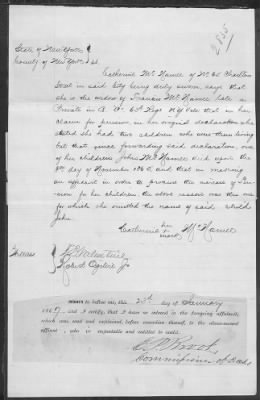 2835
State of New York }
County of New York } SS.
Catherine Mc Namee of No 65 Charlton
Street in said City being duly sworn, says that
she is the widow of Francis Mc Namee late a
Private in Co. 63d Regt N.Y. Vols that in her
claim for pension, in her original declaration she
stated she had two children who were then living
but that since forwarding said declaration, one
of her children John Mc Namee died upon the
8th day of November 186 and that in making
an affidavit in order to procure the increase of Pen-
sion for her children the above reason was the one
for which she omitted the name of said child
John.
Catherine her mark Mc Namee
Witnesses
Robert
SWORN to before me, this 23d day of January
1867, and I certify, that I have no interest in the foregoing affidavits,
which was read and explained, before execution thereof, to the abovenamed
affiant, who is respectable and entitled to credit.
Commissioner of Deeds